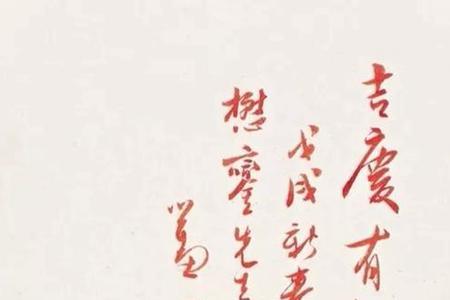 吉慶有
戊戌新春
懋
先生